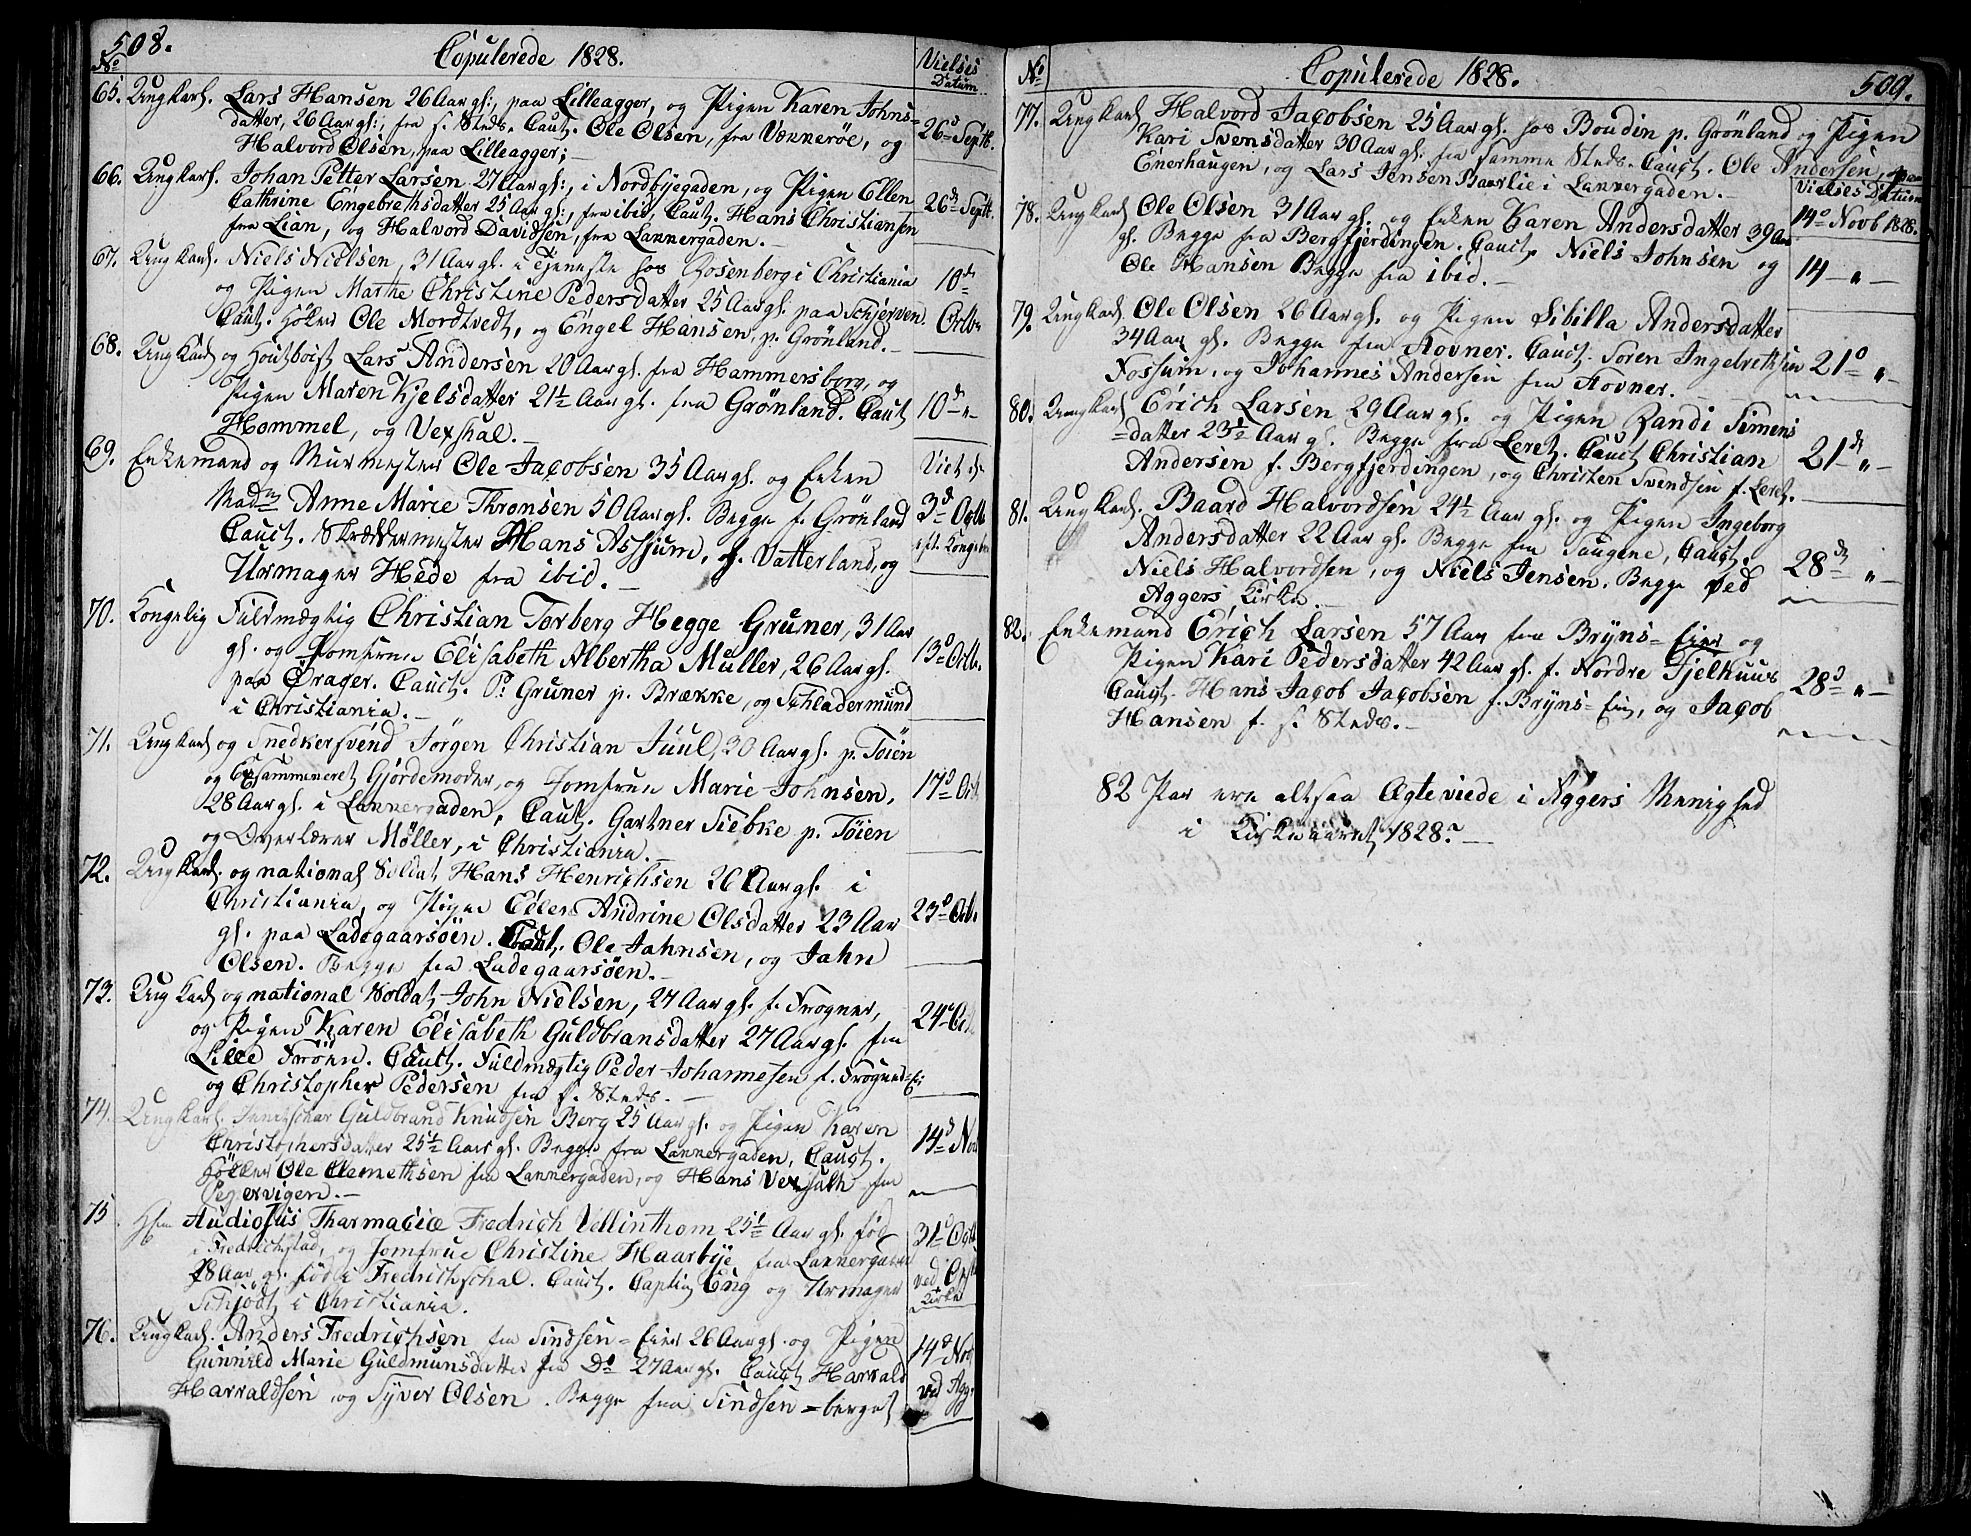 508.
No
Copulerede 1828.
Vielses Datum
65. Ungkarl. Lars Hansen 26 Aar gl:, paa Lilleagger, og Pigen Karen Johns-
datter, 26 Aar gl:, fra s. Steds. Caut. Ole Olsen, fra Vækkerøe, og
Halvord Olsen, paa Lilleagger;—
26d Septb.
66. Ungkarl. Johan Petter Larsen 27 Aar gl:, i Nordbyegaden, og Pigen Ellen
Cathrine Engebrehsdatter 25 Aar gl:, fra ibid, Caut. Hans Christiansen
fra Lian, og Halvord Davidsen, fra Lannergaden.—
26de Septb.
67. Ungkarl. Niels Nielsen, 31 Aar gl. i Tjeneste hos Rosenberg i Christiania
og Pigen Marthe Christine Pedersdatter 25 Aar gl. paa Schjerven
Caut. Höker Ole Mordtvedt, og Engel Hansen, p. Grönland.
10de Octbr
68. Ungkarl og Houtboist Lars Andersen 20 Aar gl. fra Hammersborg, og
Pigen Maren Kjelsdatter 21½ Aar gl. fra Grönland. Caut
Hommel, og Vexhal.—
10de "
69. Enkemand og Murmester Ole Jacobsen 35 Aar gl. og Enken
Madm Anne Marie Thronsen 50 Aar gl. Begge f. Grönland
Cauct. Skræddermester Hans Ashjum, f. Vatterland, og
Urmager Hede fra ibid.—
Viet d.
3d Octb
70. Kongelig Fuldmægtig Christian Torberg Hegge Gruner, 31 Aar
gl. og Jomfrue Elisabeth Albertha Müller, 26 Aar gl.
paa Örager. Cauct. P: Gruner p. Brække, og Schladermund
i Christiania.—
13d Octb.
71. Ungkarl og Snedkersvend Jörgen Christian Juul, 30 Aar gl. p. Töien
og Exsammineret Gjordemoder, og Jomfrue Marie Johnsen,
28 Aar gl. i Lannergaden, Caut. Gartner Siebke p. Töien
og Overlærer Møller, i Christiania.—
17d Oct.
72. Ungkarl. og national Soldat Hans Henrichsen 26 Aar gl. i
Christiania, og Pigen Ellen Andrine Olsdatter 23 Aar
gl. paa Ladegaarsöen. Caut. Ole Jahnsen, og Jahn
Olsen. Begge fra Ladegaarsöen.—
23d Octb.
73. Ungkarl og national Soldat John Nielsen, 27 Aar gl. f. Frogner,
og Pigen Karen Elisabeth Guldbransdatter 27 Aar gl. fra
Lille Frøen. Cauct. Fuldmægtig Peder Johannesen f. Frogner-Ei:
og Christopher Pedersen fra s. Steds.—
24d Oct.
74. Ungkarl. Guldbrand Knudsen Berg 25 Aar gl. og Pigen Karen
Christophersdatter 25½ Aar gl. Begge fra Lannergaden, Cauct.
Höker Ole Clemethsen fra Lannergaden, og Hans Vexhalh fra
Pepervigen.—
14d Nov
75. Hrr Studiosus Pharmaciæ Fredrich Vellinthom 25½ Aar gl. fød
i Fredrichstad, og Jomfrue Christine Haarbye fra Lannergaden
28 Aar gl. fød i Fredrichshal. Cauct. Captin Eng og Urmager
Schjödt i Christiania.
31d Octb
ved
Kirke
76. Ungkarl. Anders Fredrichsen fra Sindsen-Eier 26 Aar gl. og Pigen
Gunnild Marie Guldmunsdatter fra Do 27 Aar gl. Cauct Harrald
Harraldsen og Syver Olsen. Begge fra Sindsen-berget
14d Nov
ved Agg.
No
Copulerede 1828.
509.
77. Ungkarl Halvord Jacobsen 25 Aar gl. hos Boudin p. Grönland og Pigen
Kari Svensdatter 30 Aar gl. fra samme Steds. Cauct. Ole Andersen, paa
Enerhaugen, og Lars Jensen Baarlie i Lannergaden.—
Vielses Datum
14d Novb 1828.
78. Ungkarl Ole Olsen 31 Aar gl. og Enken Karen Andersdatter 39 Aar
gl. Begge fra Bergfjerdingen. Cauct. Niels Johnsen og
Ole Hansen Begge fra ibid.—
14 — " —
79. Ungkarl Ole Olsen 26 Aar gl. og Pigen Sibilla Andersdatter
34 Aar gl. Begge fra Hovner. Cauct. Soren Ingebrethsen
Fossum, og Johannes Andersen fra Hovner.—
21d " —
80. Ungkarl Erich Larsen 29 Aar gl. og Pigen Randi Simens
=datter 23½ Aar gl. Begge fra Leret. Cauct Christian
Andersen f. Bergfjerdingen, og Christen Svendsen f. Leret.
21de " —
81. Ungkarl. Baard Halvordsen 24½ Aar gl. og Pigen Ingeborg
Andersdatter 22 Aar gl. Begge fra Saugene, Cauct.
Niels Halvordsen, og Niels Jensen. Begge ved
Aggers Kirke.—
28de " —
82. Enkemand Erich Larsen 57 Aar fra Bryns-Eier og
Pigen Kari Pedersdatter 42 Aar gl. f. Nordre Fjelhuus
Cauct. Hans Jacob Jacobsen f. Bryns-Ei, og Jacob
Hansen f. s. Steds.—
28d " —
82 Par ere altsaa Ægteviede i Aggers Menighed
i Kirkeaaret 1828.—